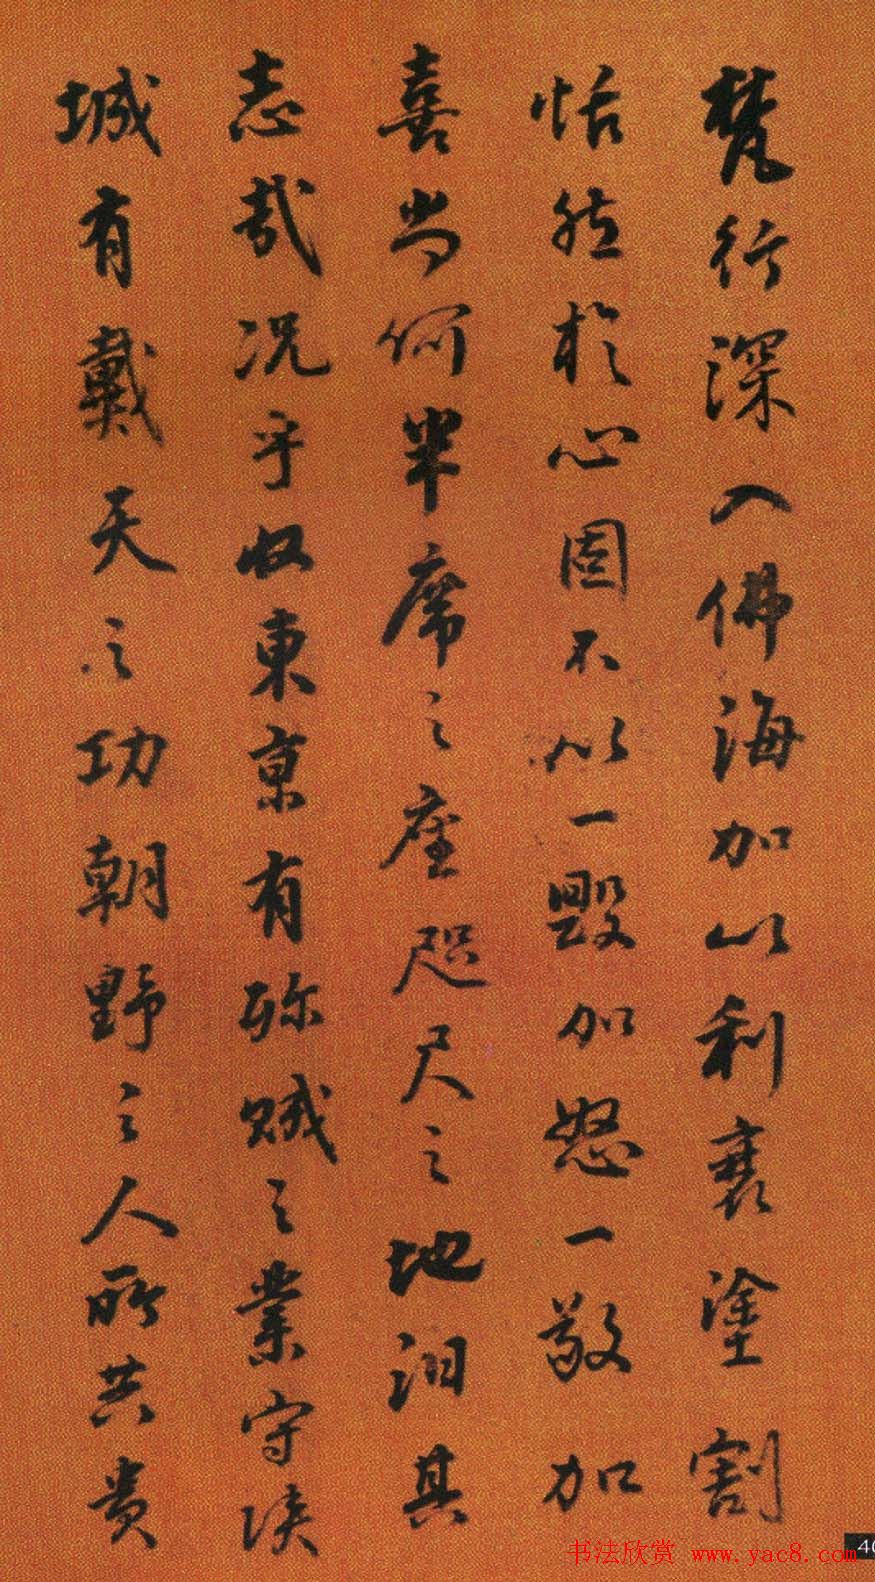 梵行深入佛海加以利衰塗割
恬然於心固不以一毀加怒一敬加
喜尚何半席之座咫尺之地汨其
志哉况乎收東京有殄賊之業守陝
城有戴天之功朝野之人所共貴
书法欣赏 www.yac8.com
40